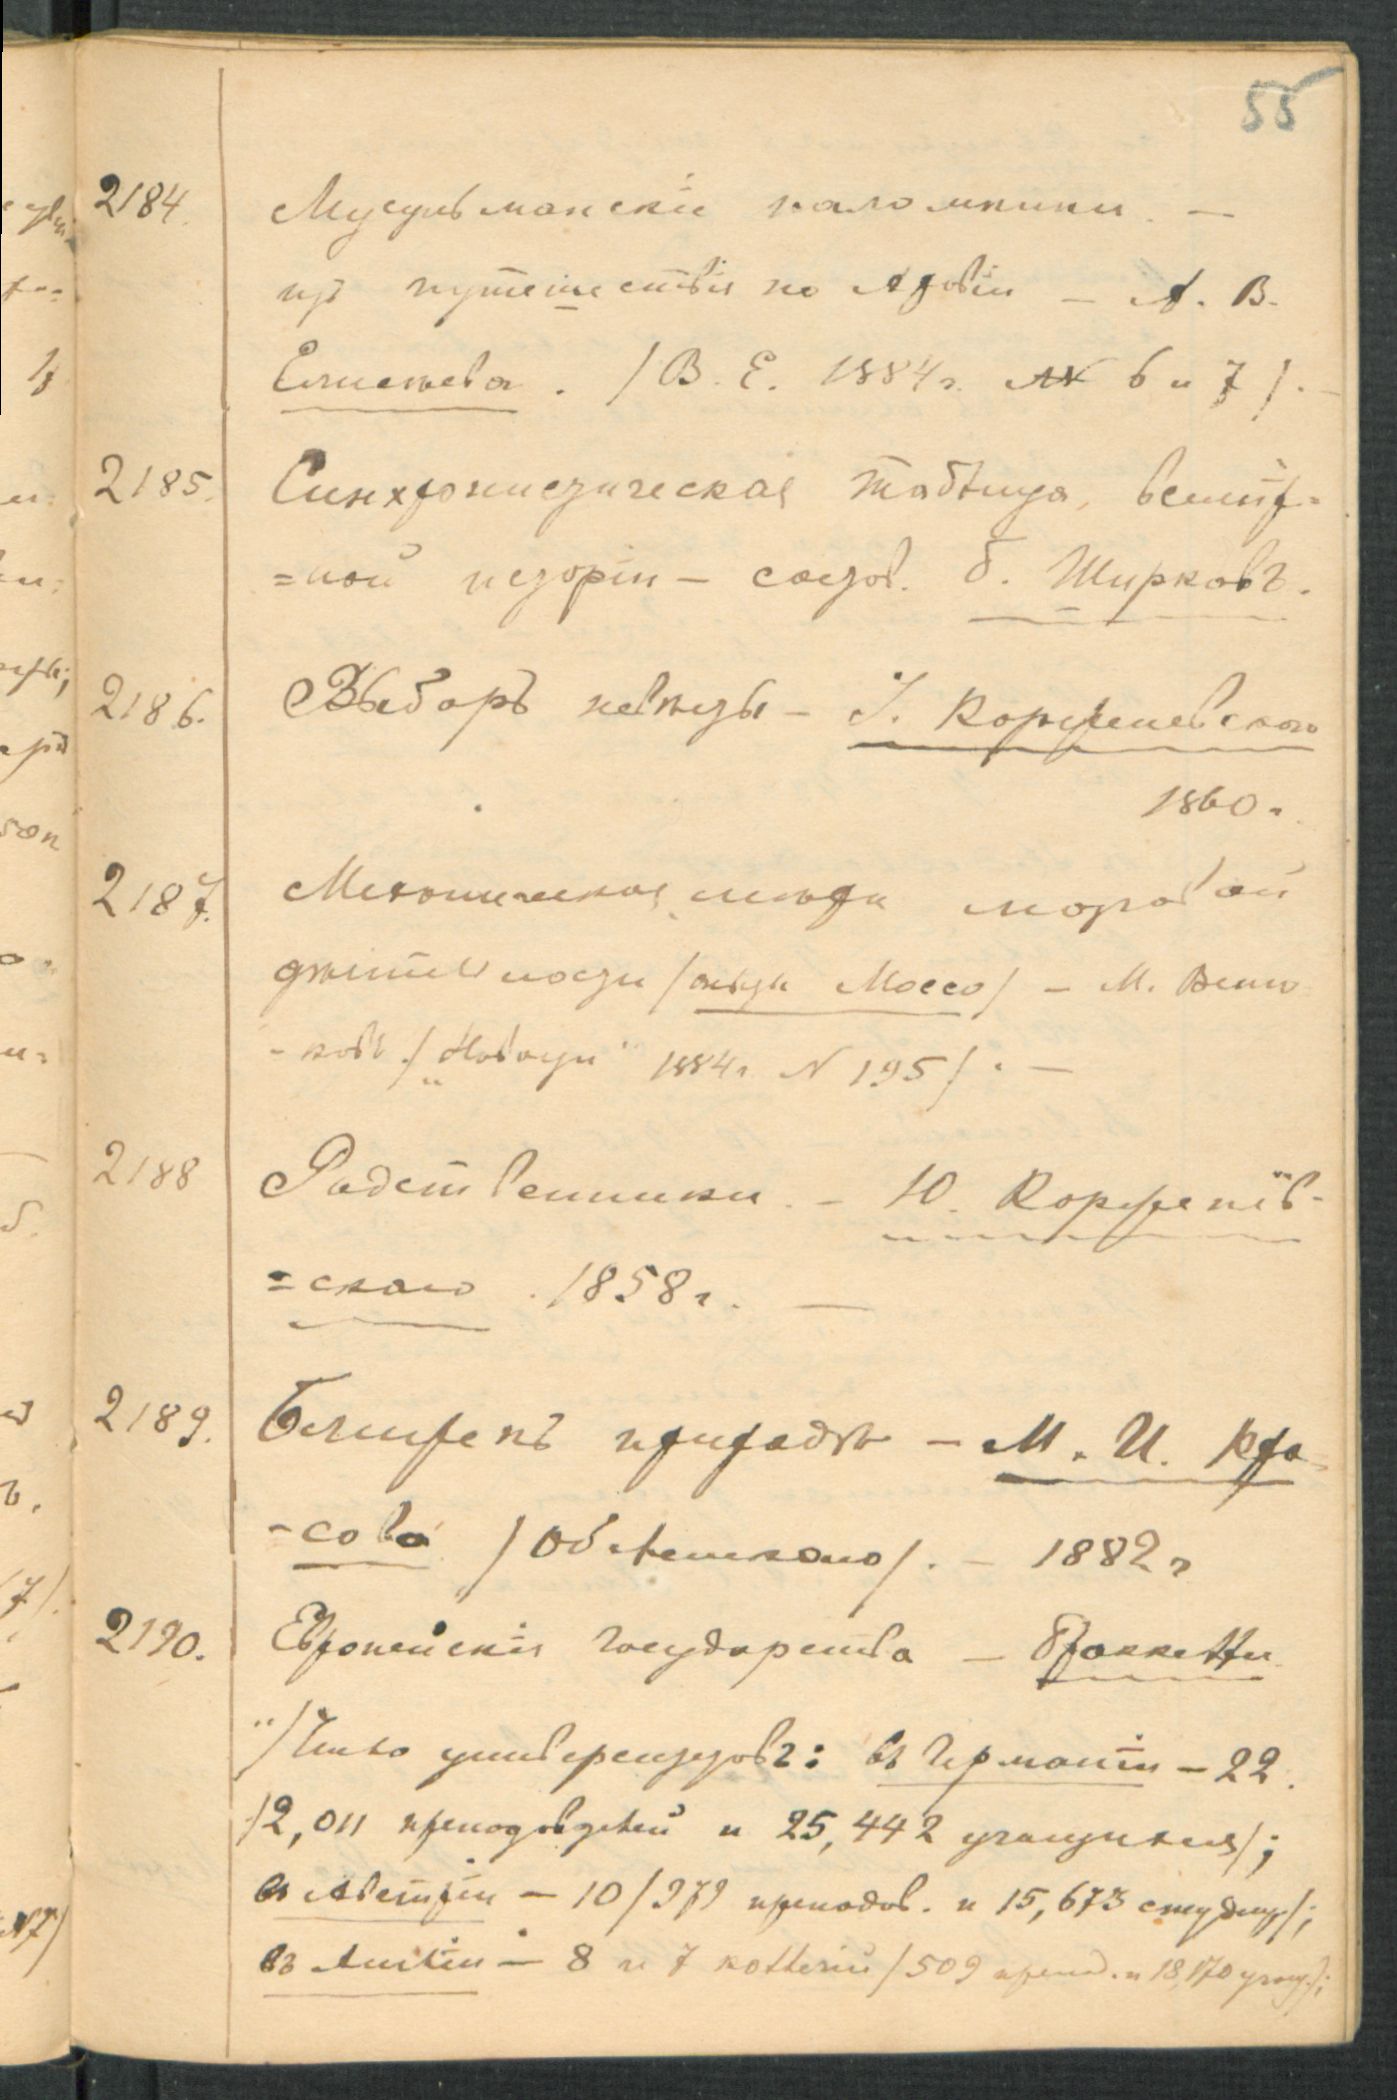 55
2184. Мусульманскіе паломники. —
изъ путешествія по Аравіи — А. В.
Елисѣева. /В. Е. 1884 г. №№ 6 и 7/. —
2185. Синхронистическая таблица, всемір=
=ной исторіи — состав. Б. Ширковъ.
2186. Выборъ невѣсты — І. Корженевскаго
1860 г.
2187. Механическая мозговой
дѣятельности /опыты Моссо/ — М. Веню-
-ковъ /„Новости" 1884 г. N 195/. —
2188 Родственники. — Ю. Корженев-
=скаго. 1858 г. —
2189. Близь природы — М. И. Кра-
-сова /Оболенскаго/. — 1882 г
2190. Европейскія государства — Бракелли
"/Число университетовъ: въ Германіи — 22.
/2,011 преподавателей и 25,442 учащихся/;
въ Австріи — 10 /979 преподов. и 15,673 студент./;
въ Англіи — 8 и 7 коллегій /509 препод. и 18,170 учащ./;